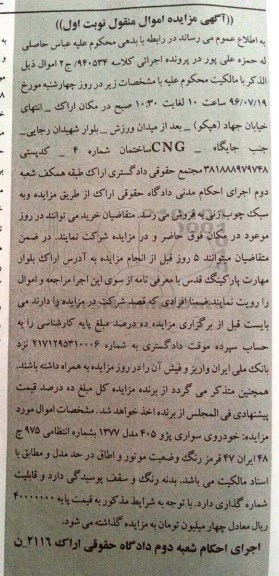 ((آگهی مزایده اموال منقول نوبت اول))
به اطلاع عموم می رساند در رابطه با بدهی محکوم علیه عباس حاصلی
له حمزه علی پور در پرونده اجرائی کلاسه ۹۴۰۵۳۴/ ج۲ اموال ذیل
الذکر با مالکیت محکوم علیه با مشخصات زیر در روز چهارشنبه مورخ
۹۶/۰۷/۱۹ ساعت ۱۰ لغایت ۱۰:۳۰ صبح در مکان اراک _ انتهای
خیابان جهاد (هپکو) _ بعد از میدان ورزش _ بلوار شهیدان رجایی_
جنب جایگاه CNG_ساختمان شماره ۴ _ کدپستی
۳۸۱۸۸۹۷۹۷۴۸ مجتمع حقوقی دادگستری اراک طبقه همکف شعبه
دوم اجرای احکام مدنی دادگاه حقوقی اراک از طریق مزایده وبه
سبک چوب زنی به فروش می رسد. متقاضیان خرید می توانند در روز
موعود در مکان فوق حاضر و در مزایده شرکت نمایند. در ضمن
متقاضیان میتوانند ۵ روز قبل از انجام مزایده به آدرس اراک بلوار
مهارت پارکینگ قدس با معرفی نامه از سوی این اجرا مراجعه و اموال
را رویت نمایند.ضمنا افرادی که قصد شرکت در مزایده را دارند می
بایست قبل از برگزاری مزایده ده درصد مبلغ پایه کارشناسی را به
حساب سپرده موقت دادگستری به شماره ۲۱۷۱۲۹۵۳۱۰۰۰۶ نزد
بانک ملی ایران واریز و فیش آن را در روز مزایده به همراه داشته باشند.
همچنین متذکر می گردد از برنده مزایده کل مبلغ ده درصد قیمت
پیشنهادی فی المجلس از برنده اخذ خواهد شد. مشخصات اموال مورد
مزایده: خودروی سواری پژو ۴۰۵ مدل ۱۳۷۷ بشماره انتظامی ۹۷۵ ج
۴۸ ایران ۴۷ قرمز رنگ وضعیت موتور و اطاق در حد مدل و مطابق با
اسناد مالکیت می باشد. بدنه رنگ و سقف پوسیدگی دارد و قابلیت
شماره گذاری دارد. با توجه به شرایط مذکور به قیمت پایه ۴۰۰۰۰۰۰۰
ریال معادل چهار میلیون تومان به مزایده گذاشته می شود.
اجرای احکام شعبه دوم دادگاه حقوقی اراک ۲۱۱۶_ن